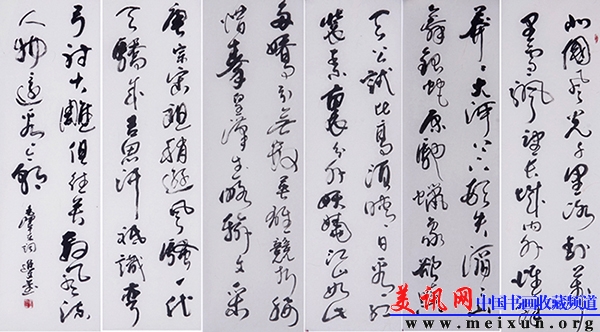 北國風光千里冰封萬
里雪飄望長城內外惟餘
莽々大河上下頓失滔々山
舞銀蛇原馳蠟象欲與
天公試比高須晴日看紅
裝素裹分外妖嬈江山如此
多嬌引無數英雄競折腰
惜秦皇漢武略輸文采
唐宗宋祖稍遜風騷一代
天驕成吉思汗祇識彎
弓射大雕俱往矣數風流
人物還看今朝
美讯网
中国书画收藏频道
www.meixun.org